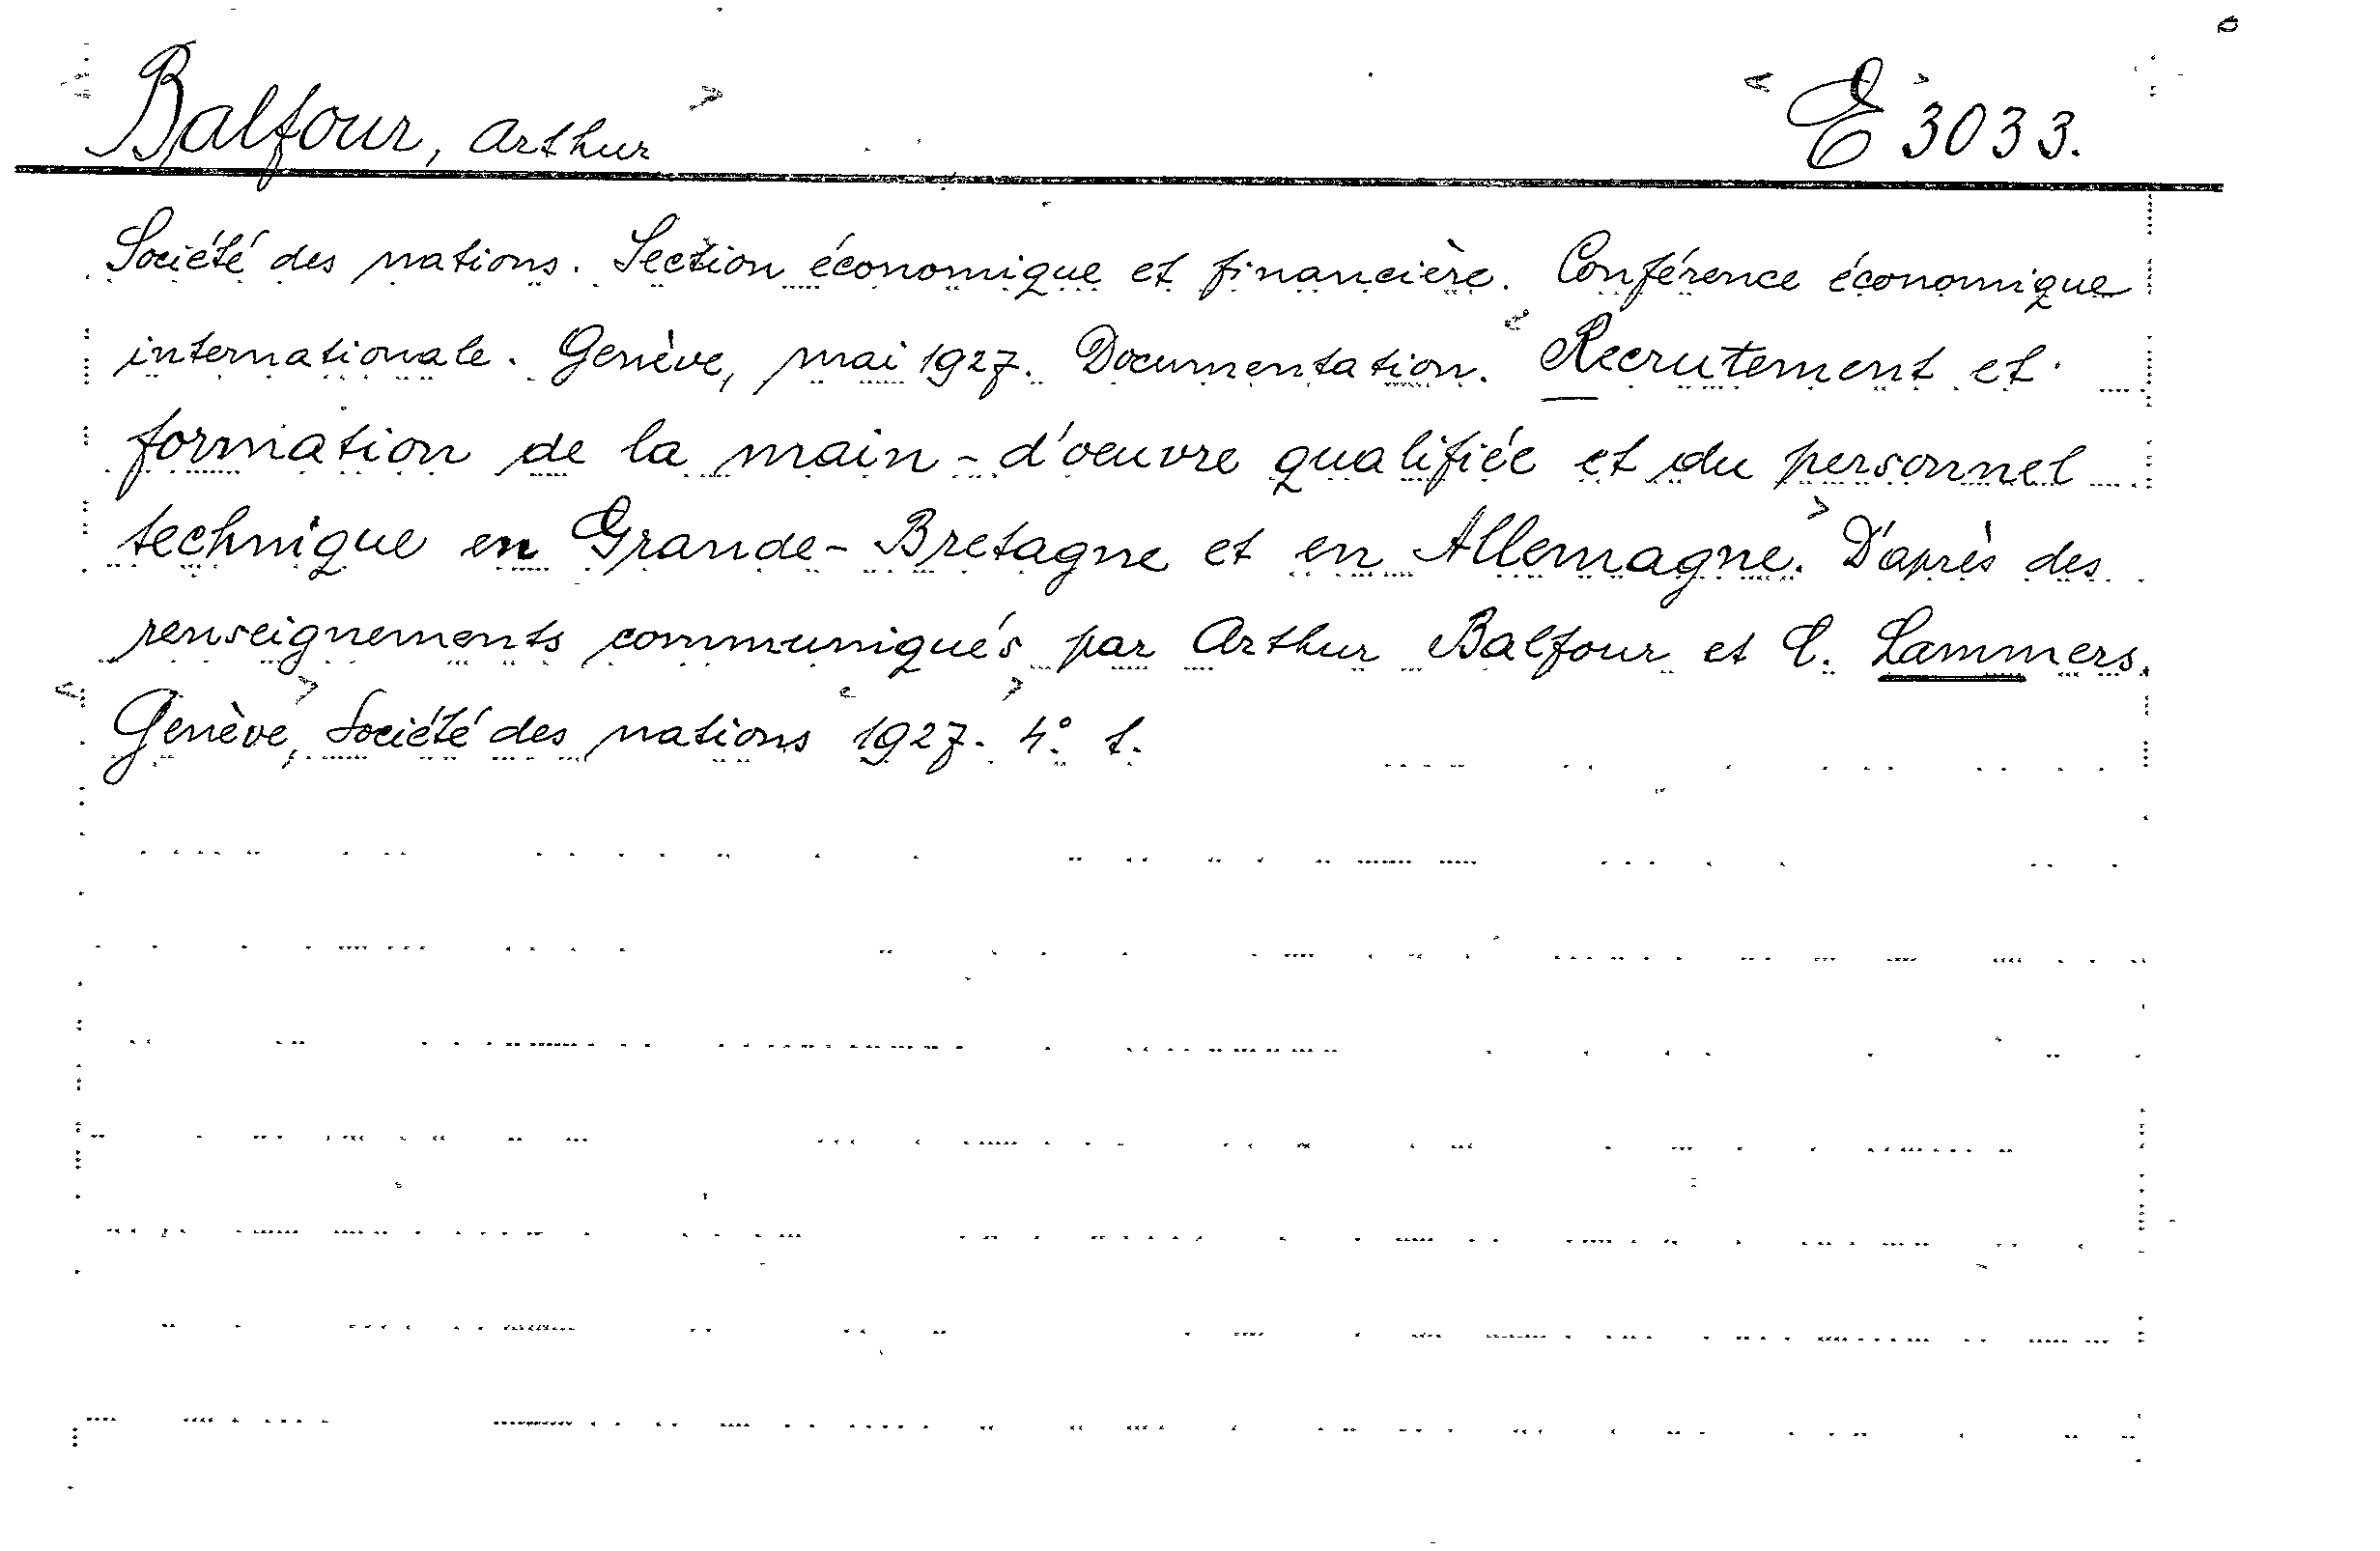 Balfour, Arthur E 3033.
Société des nations. Section économique et financière. Conférence économique
internationale. Genève, mai 1927. Documentation. Recrutement et
formation de la main-d'oeuvre qualifiée et du personnel
technique en Grande-Bretagne et en Allemagne. D'après des
renseignements communiqués par Arthur Balfour et C. Lammers.
Genève, Société des nations 1927. 4°.